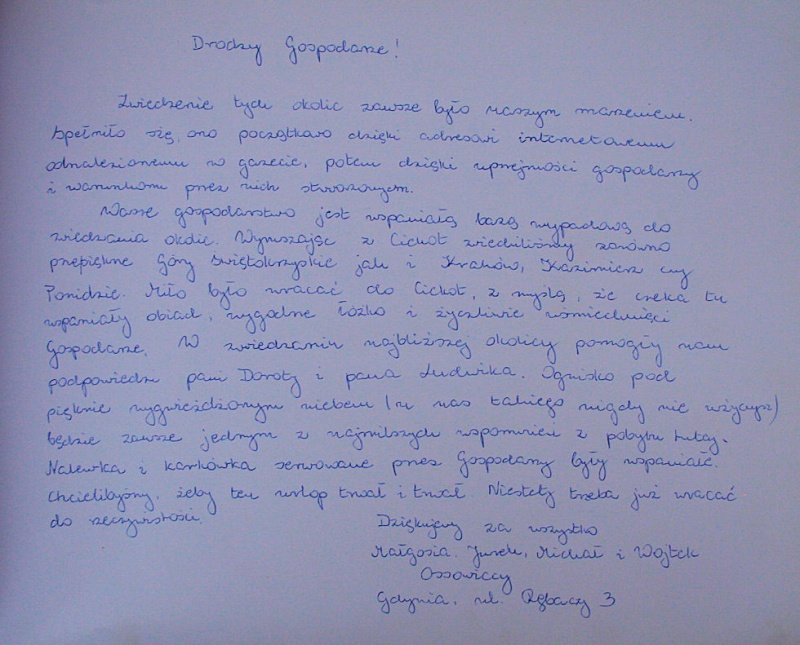 Drodzy Gospodarze!
Zwiedzenie tych okolic zawsze było naszym marzeniem.
Spełniło się ono początkowo dzięki adresowi internetowemu
odnalezionemu w gazecie, potem dzięki uprzejmości gospodarzy
i warunkom przez nich stworzonym.
Wasze gospodarstwo jest wspaniałą bazą wypadową do
zwiedzania okolic. Wyruszając z Cichot zwiedziliśmy zarówno
przepiękne Góry Świętokrzyskie jak i Kraków, Kazimierz czy
Ponidzie. Miło było wracać do Cichot, z myślą, że czeka tu
wspaniały obiad, wygodne łóżko i życzliwie uśmiechnięci
Gospodarze. W zwiedzaniu najbliższej okolicy pomogły nam
podpowiedzi pani Doroty i pana Ludwika. Ognisko pod
pięknie wygwieżdżonym niebem (u nas takiego nigdy nie
będzie zawsze jednym z najmilszych wspomnień z pobytu tutaj.
Nalewka i karkówka serwowane przez Gospodarzy były wspaniałe.
Chcielibyśmy, żeby ten urlop trwał i trwał. Niestety trzeba już wracać
do rzeczywistości.
Dziękujemy za wszystko
Małgosia, Jurek, Michał i Wojtek
Ossowiccy
Gdynia, ul. Rębaczy 3